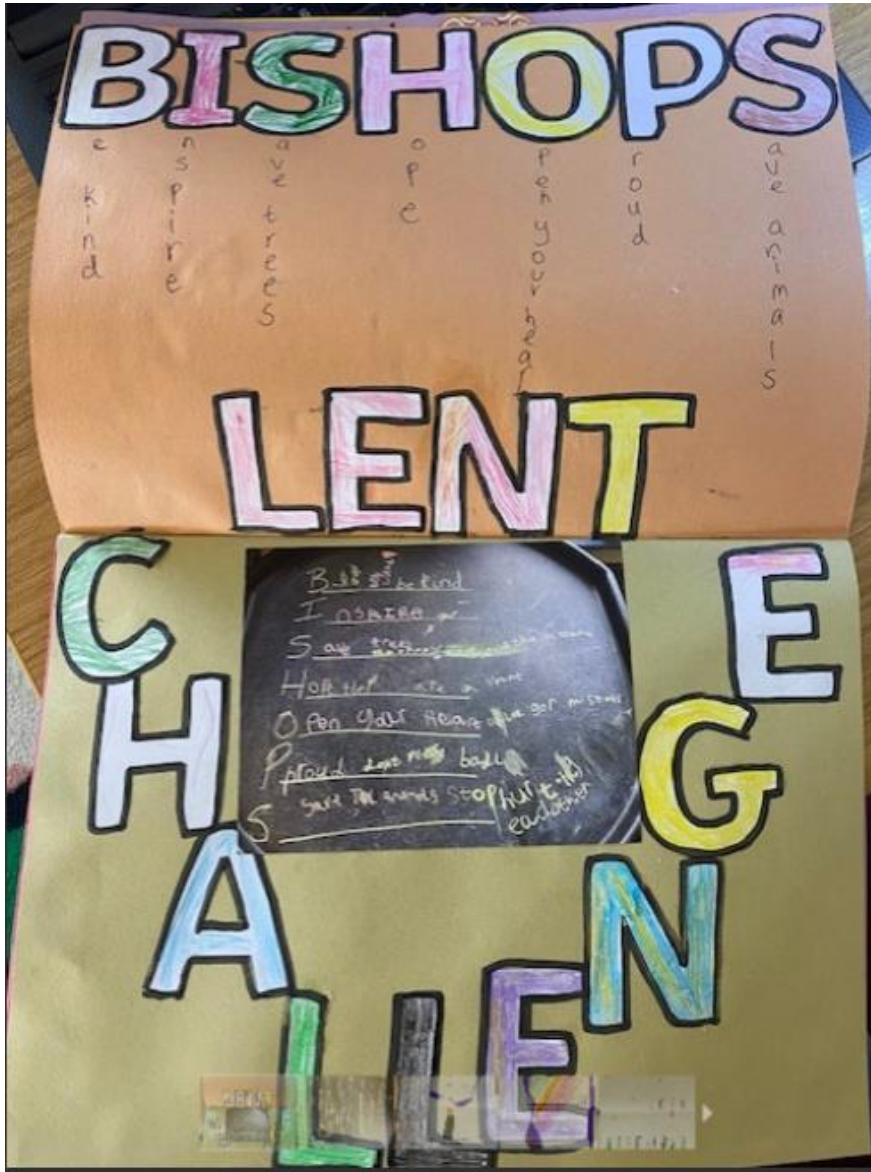 BISHOPS
e kind
nspire
ave trees
ope
pen your heart
roud
ave animals
LENT
CHALLENGE
B be kind
INSPIRE
Save trees
Hope that are
Open your Heart got
P proud bad
save animals stop hurt
S eachother